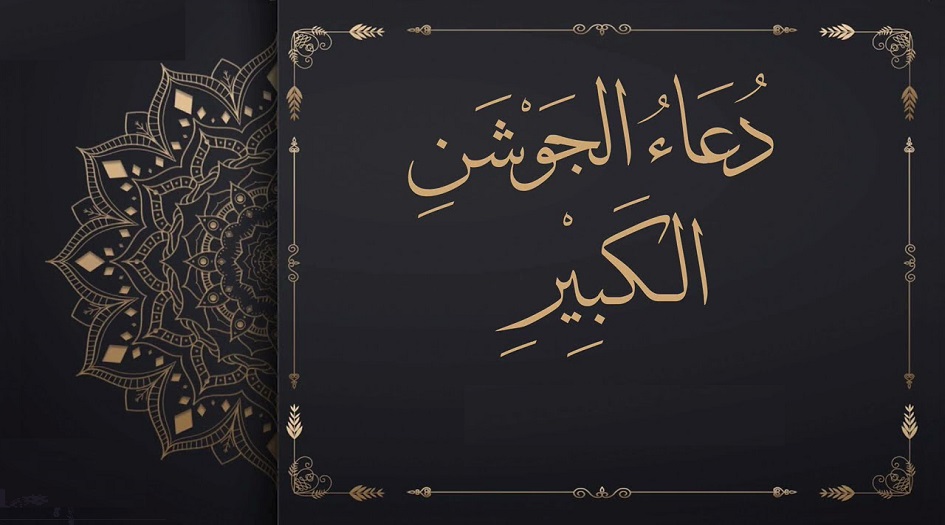 دُعَاءُ الجَوْشَنِ
الكَبِيْرِ